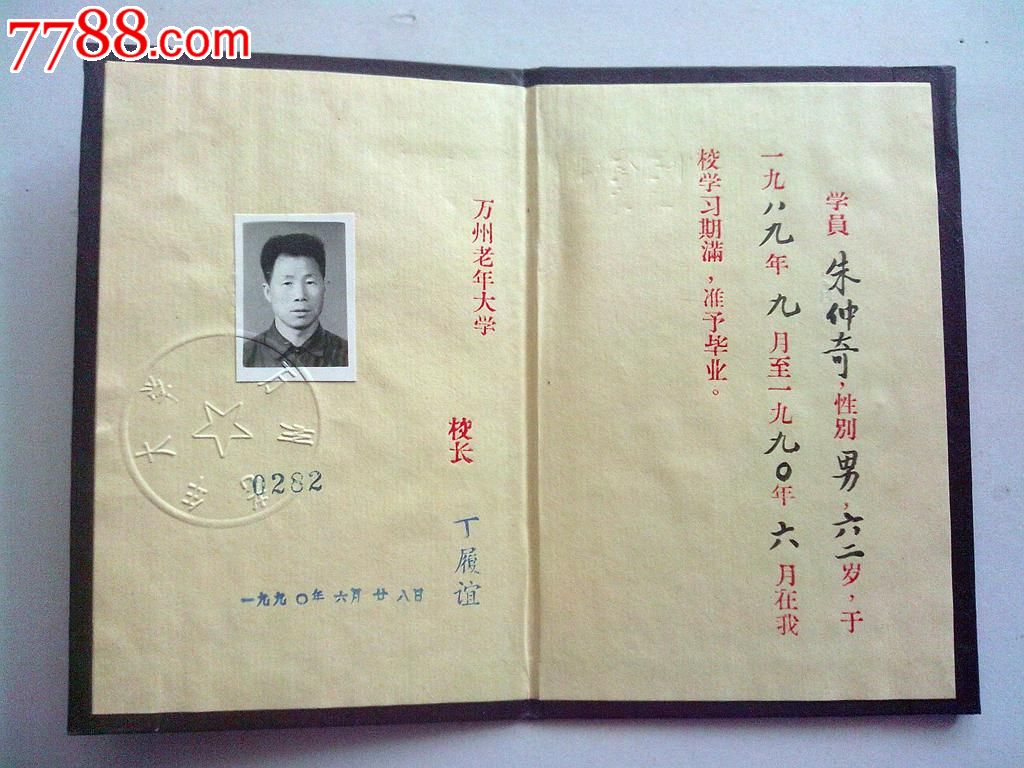 7788.com
学員 朱仲奇，性別 男，六二岁，于
一九八九年 九 月至一九九〇年 六 月在我
校学习期滿，准予毕业。
万州老年大学
校长 丁履谊
一九九〇年六月廿八日
0282
万州老年大学